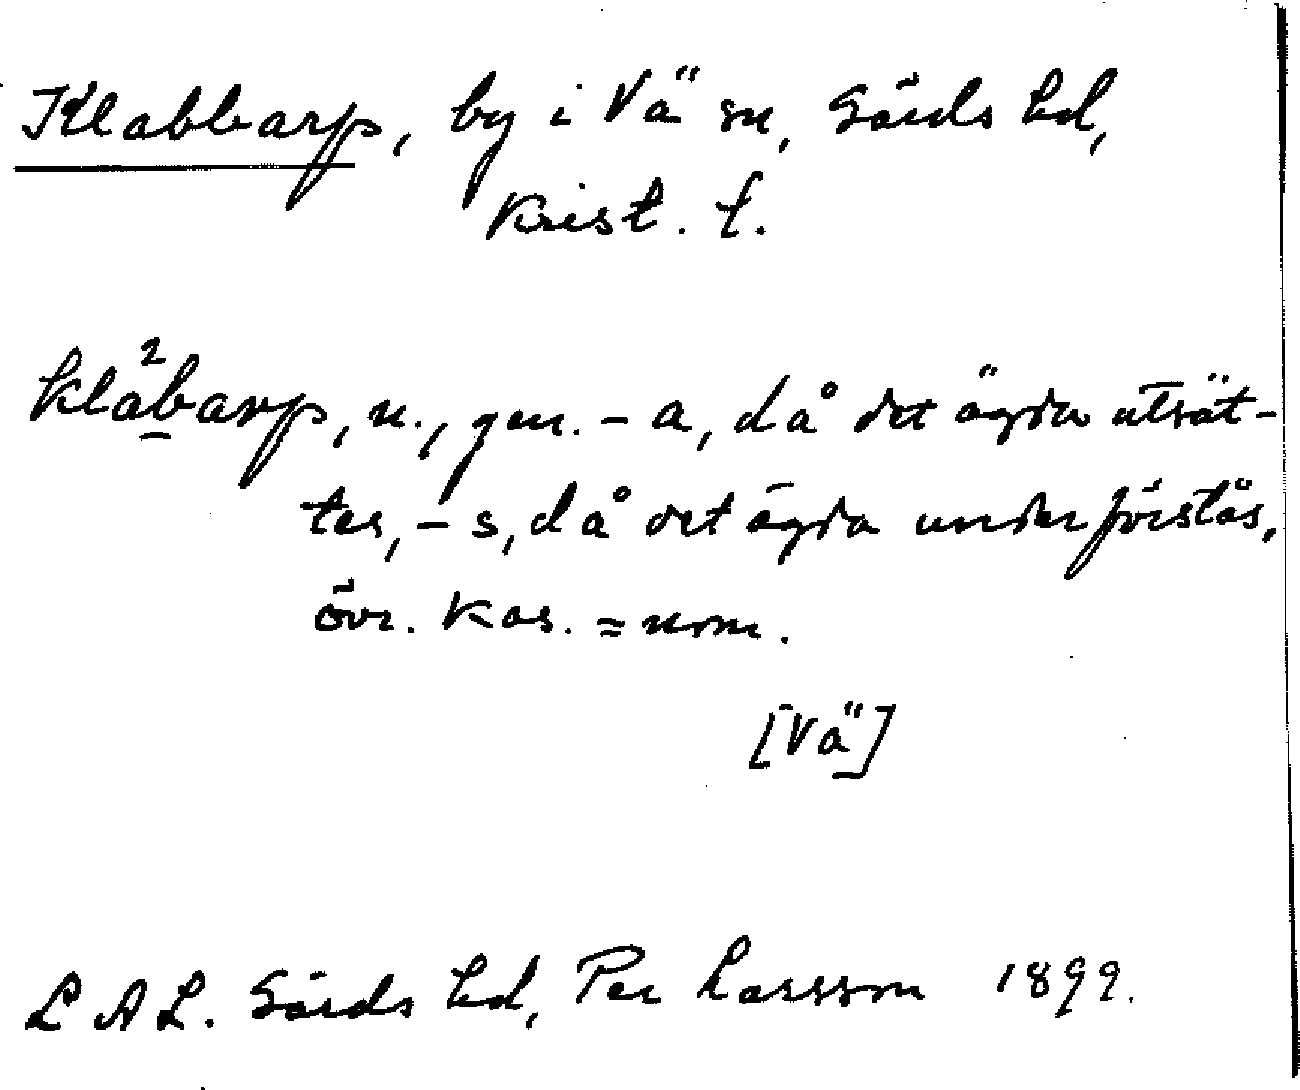 Klabbarp, by i Vä sn, Gärds hd,
Krist. l.
klä²b̲arp, n., gen. - a, då det ägda utsät-
tes, - s, då det ägda underförstås,
övr. kas. = nom.
[Vä]
L A L. Gärds hd, Per Larsson 1899.